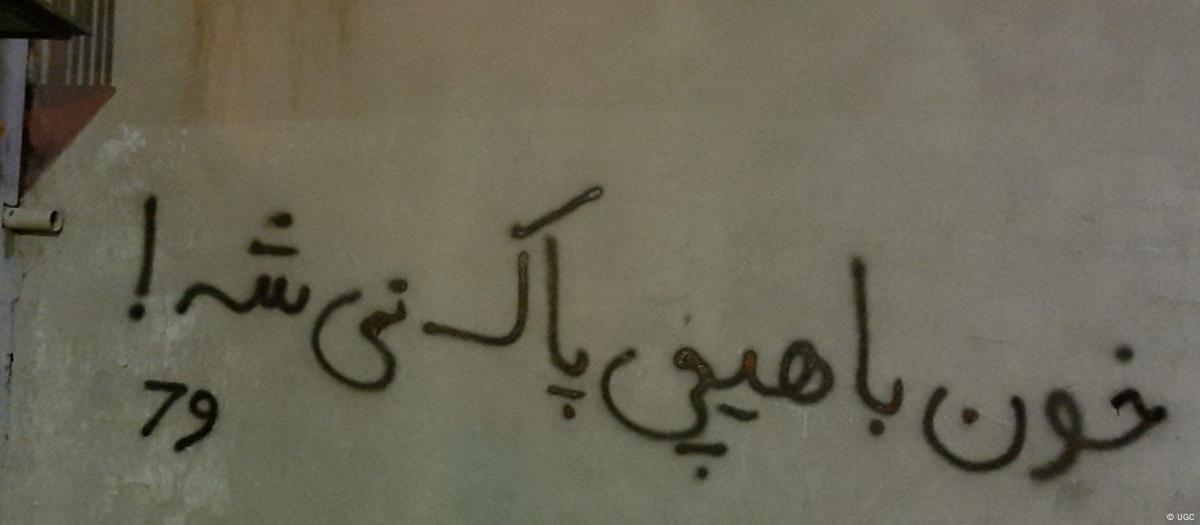 خون با هیچی پاک نمی شه!
79
© UGC